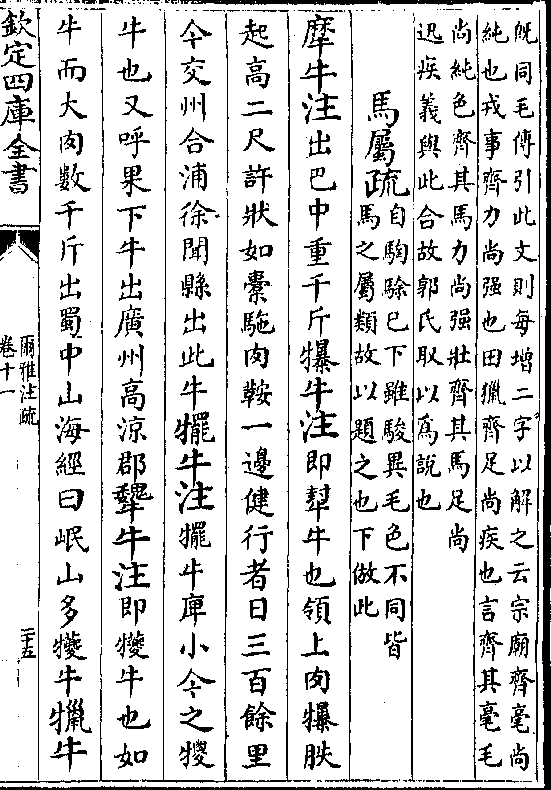 旣同毛傳引此文則每增二字以解之云宗廟齊毫尚
純也戎事齊力尚强也田獵齊足尚疾也言齊其毫毛
尚純色齊其馬力尚强壯齊其馬足尚
迅疾義與此合故郭氏取以爲說也
馬屬疏自騊駼已下雖駿異毛色不同皆
馬之屬類故以題之也下倣此
犘牛注出巴中重千斤犦牛注即犎牛也領上肉犦胅
起高二尺許狀如橐駞肉鞍一邊健行者日三百餘里
今交州合浦徐聞縣出此牛犤牛注犤牛庳小今之㹎
牛也又呼果下牛出廣州高涼郡犩牛注即犪牛也如
牛而大肉數千斤出蜀中山海經曰岷山多犪牛犣牛
欽定四庫全書
爾雅注疏
卷十一
二十五